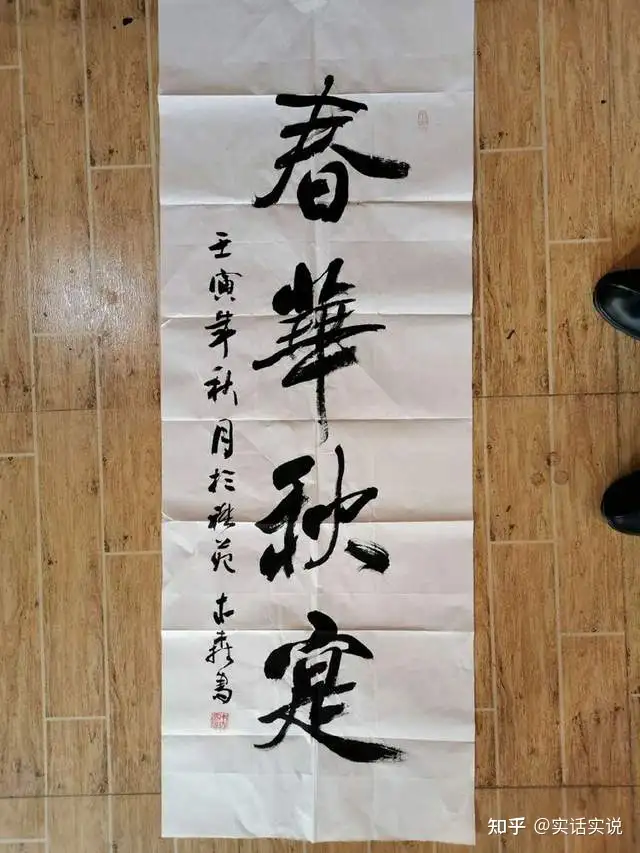 春華秋寔
壬寅年秋月於苑書
知乎 @实话实说